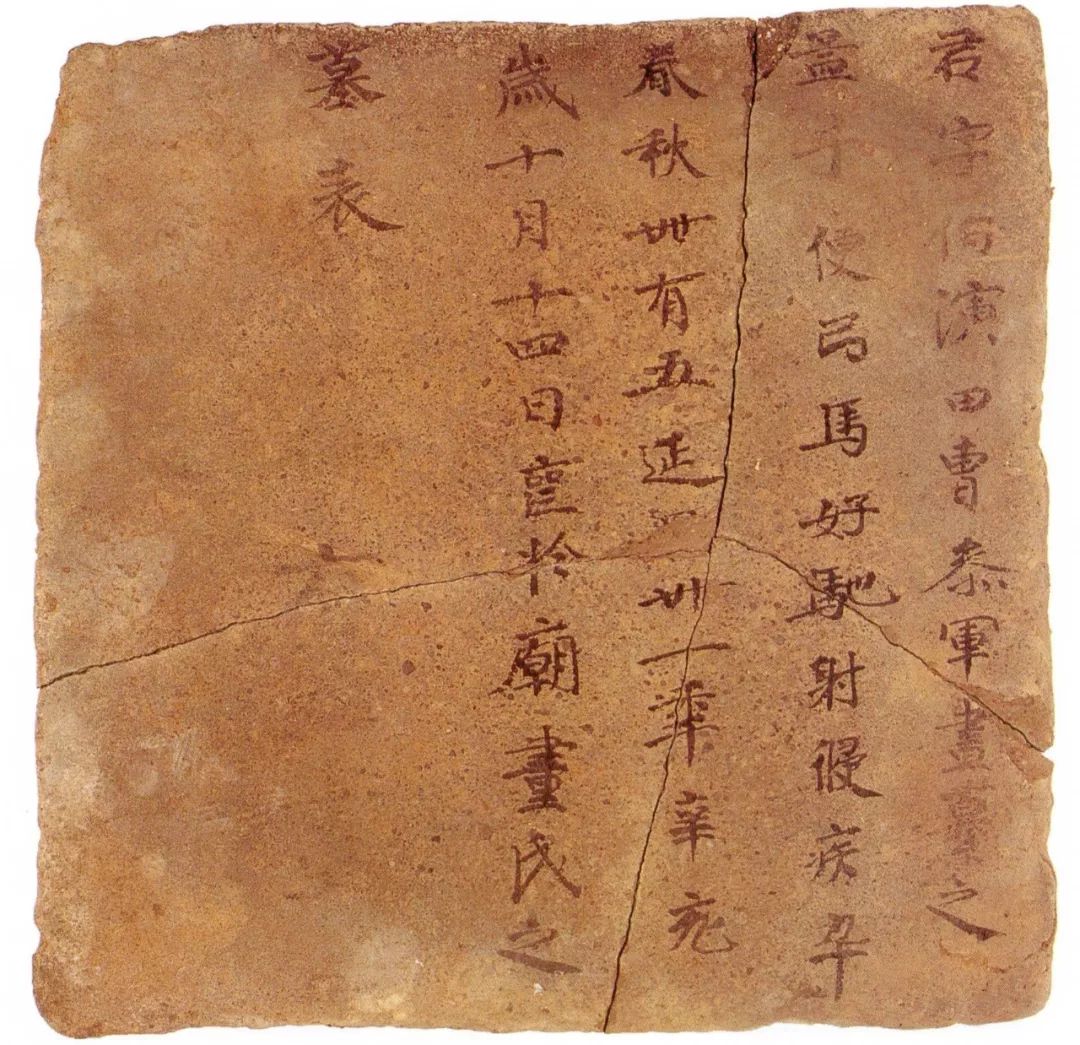 君字伯演田曹叅軍畫纂之
孟子便弓馬好馳射偃疾卒
春秋卅有五延昌卅一年辛亥
歲十月十四日喪於廟畫氏之
墓表